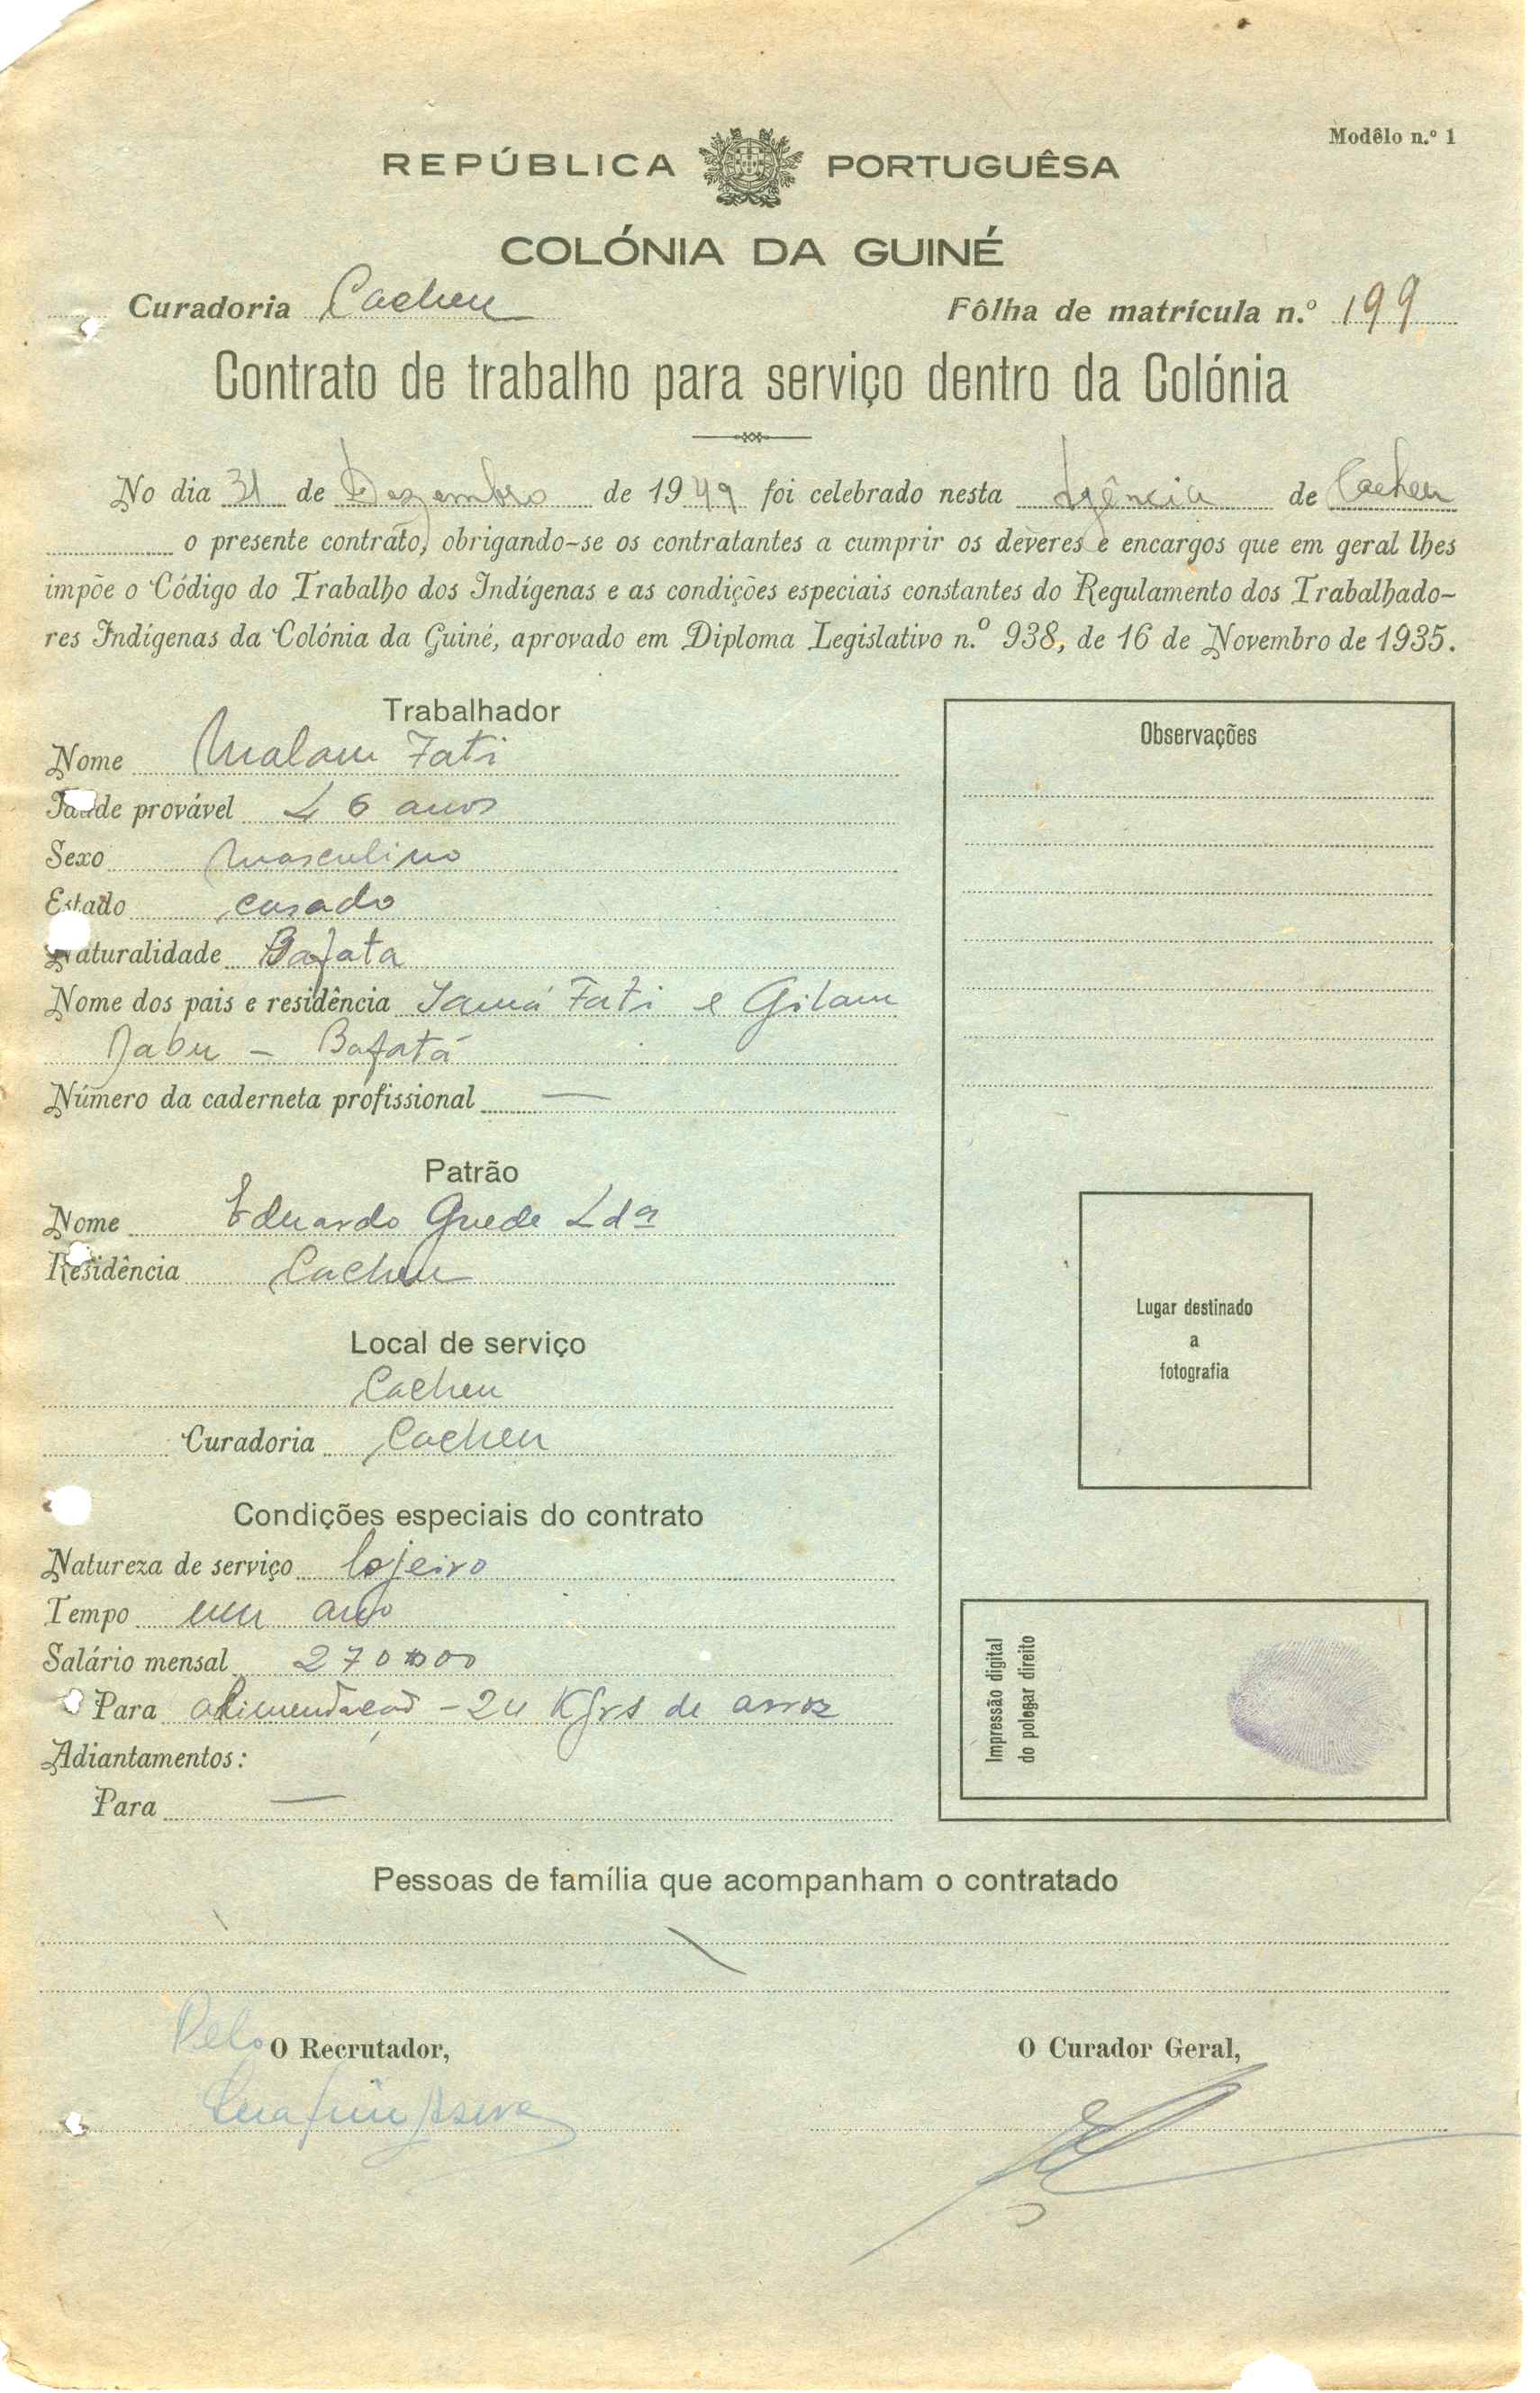 Modêlo n.º 1
REPÚBLICA PORTUGUÊSA
COLÓNIA DA GUINÉ
Curadoria Cacheu Fôlha de matrícula n.º 199
Contrato de trabalho para serviço dentro da Colónia
No dia 31 de Dezembro de 1949 foi celebrado nesta Agência de Cacheu
o presente contrato, obrigando-se os contratantes a cumprir os deveres e encargos que em geral lhes
impõe o Código do Trabalho dos Indígenas e as condições especiais constantes do Regulamento dos Trabalhado-
res Indígenas da Colónia da Guiné, aprovado em Diploma Legislativo n.º 938, de 16 de Novembro de 1935.
Trabalhador
Nome Malam Fati
Idade provável 46 anos
Sexo masculino
Estado casado
Naturalidade Bafata
Nome dos pais e residência Fati e
Bafatá
Número da caderneta profissional —
Patrão
Nome Eduardo Guede Ldª
Residência Cacheu
Local de serviço
Cacheu
Curadoria Cacheu
Condições especiais do contrato
Natureza de serviço lojeiro
Tempo um ano
Salário mensal 270$00
Para alimentação - 24 Kgrs de arroz
Adiantamentos:
Para —
Observações
Lugar destinado
a
fotografia
Impressão digital
do polegar direito
Pessoas de família que acompanham o contratado
Pelo O Recrutador,
O Curador Geral,